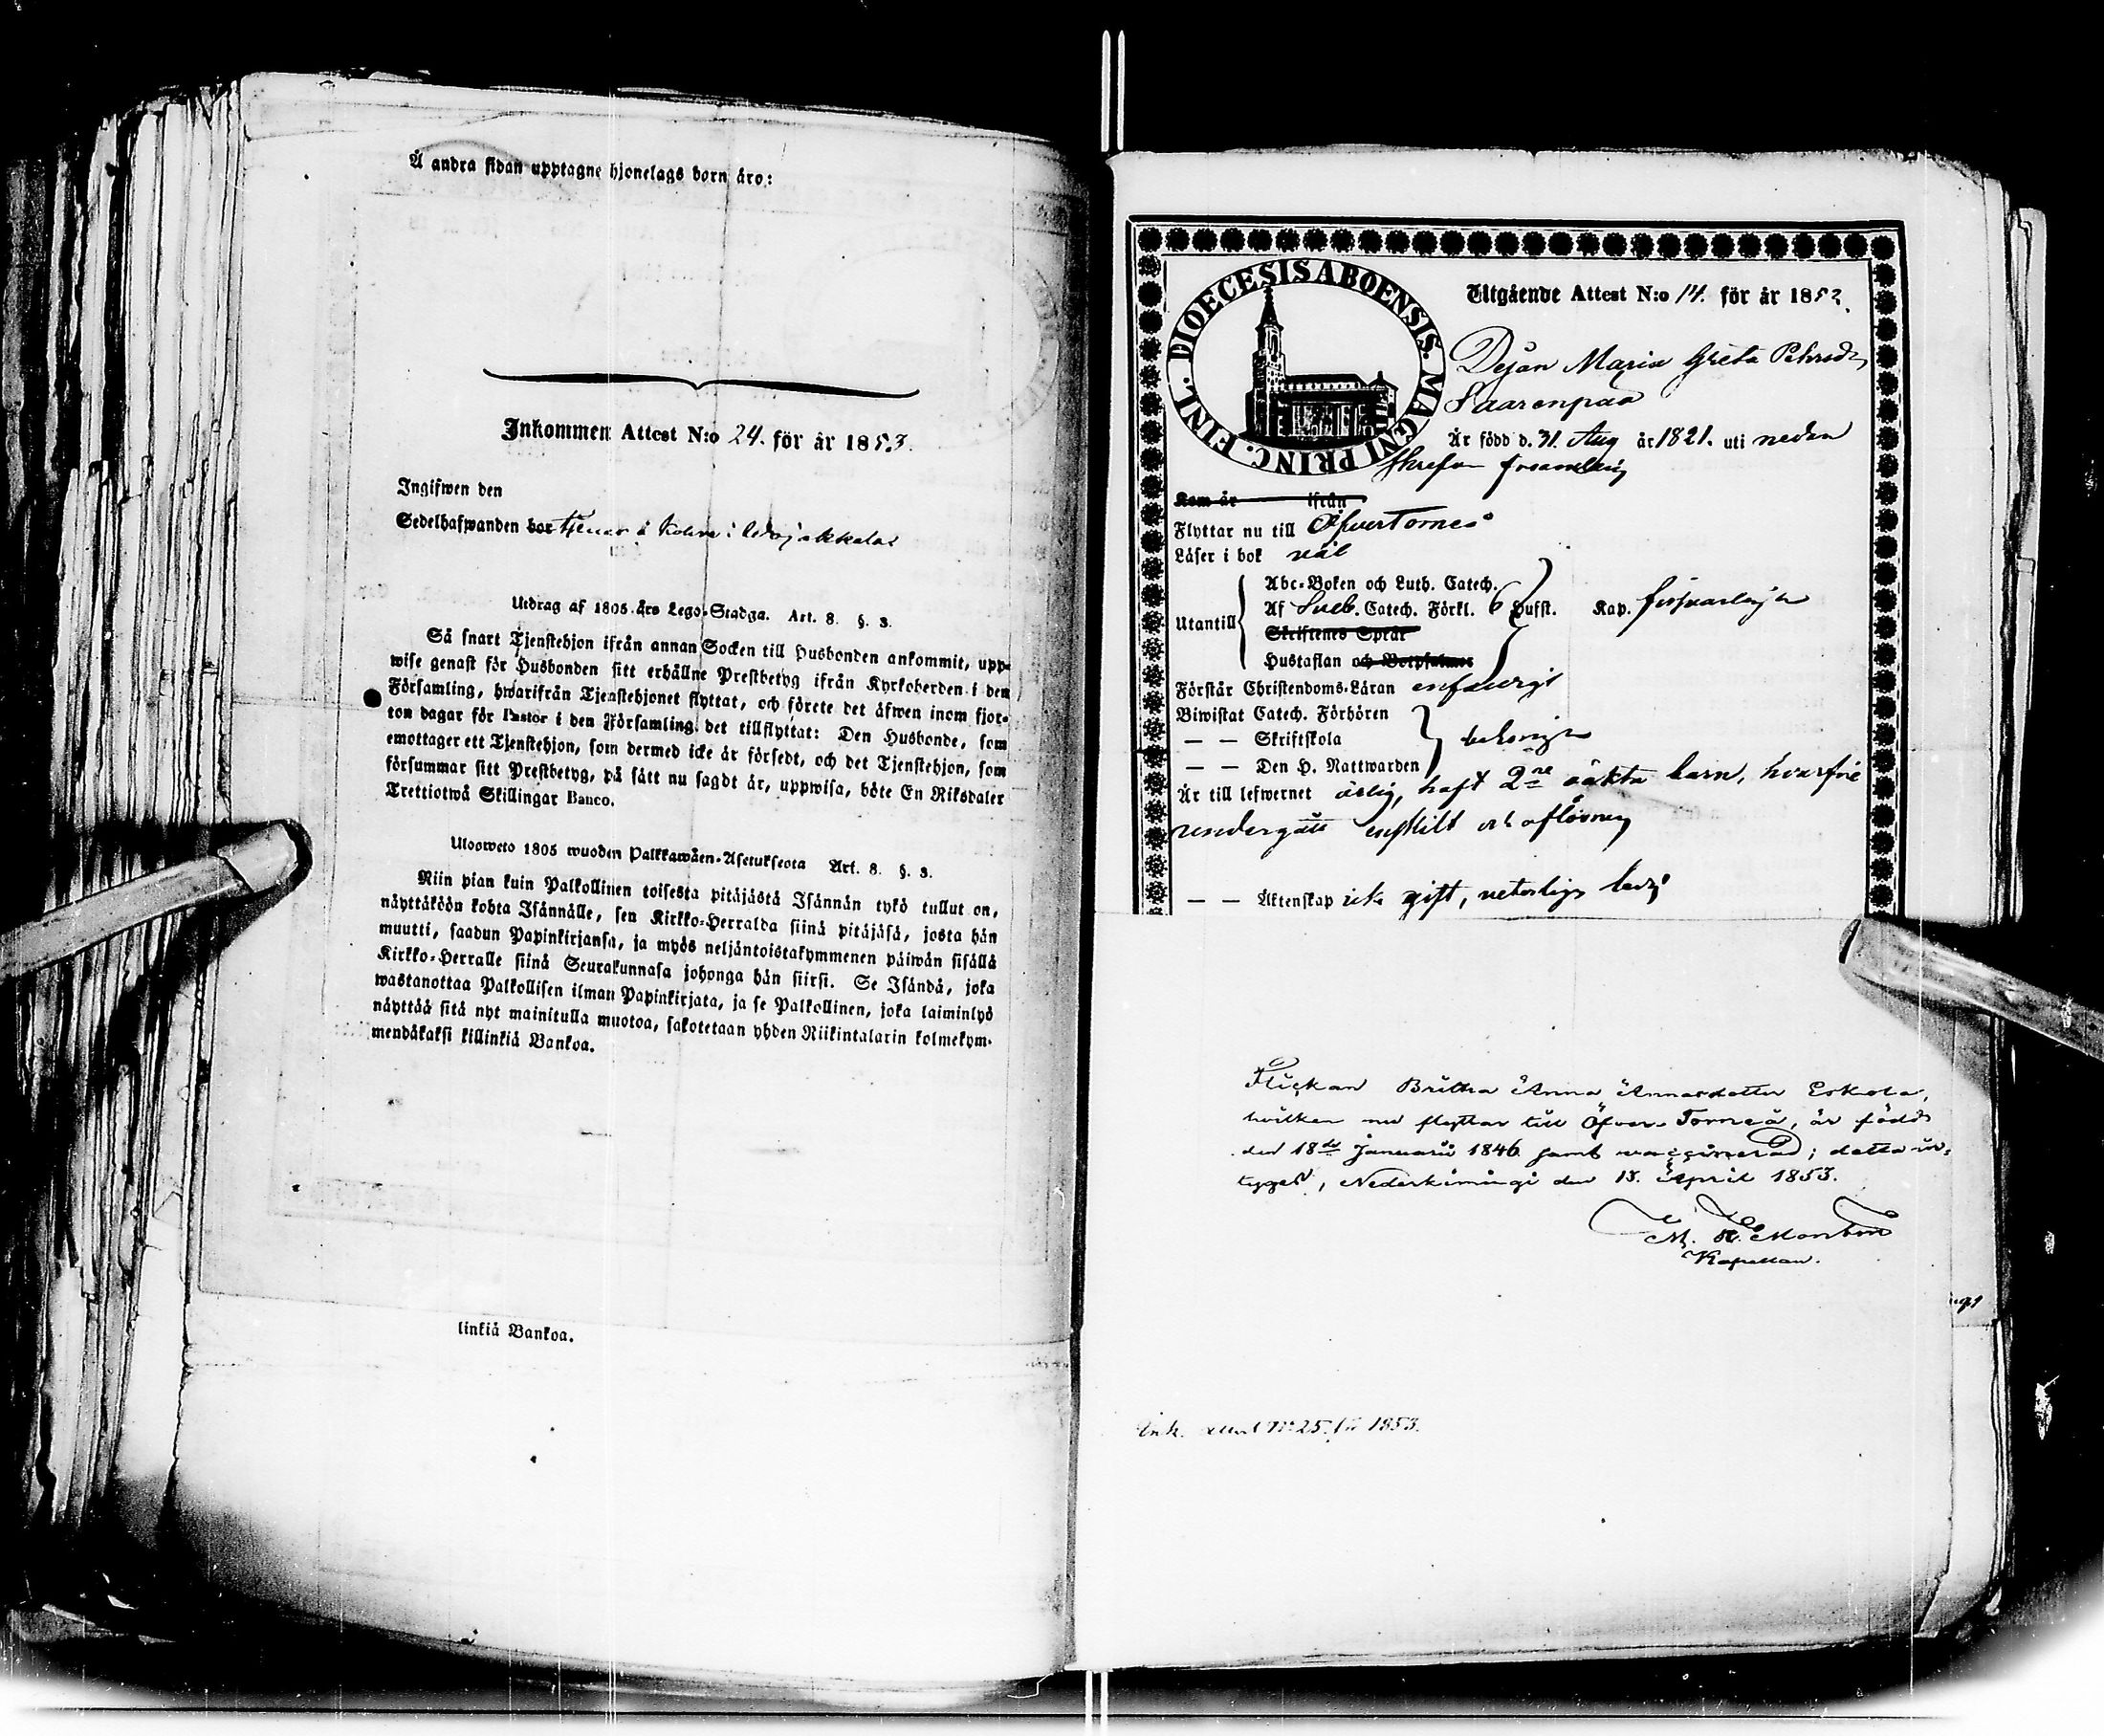 Å andra sidan upptagne hjonelags barn äro:
Inkommen Attest N:o 24. för år 1853.
Ingifwen den
Sedelhafwanden bor tjenar å
Utdrag af 1805 års Lego-Stadga. Art. 8. §. 3.
Så snart Tjenstehjon ifrån annan Socken till Husbonden ankommit, upp-
wise genast för Husbonden sitt erhållne Prestbetyg ifrån Kyrkoherden i den
Församling, hwarifrån Tjenstehjonet flyttat, och förete det äfwen inom fjor-
ton dagar för Pastor i den Församling det tillflyttat: Den Husbonde, som
emottager ett Tjenstehjon, som dermed icke är försedt, och det Tjenstehjon, som
försummar sitt Prestbetyg, på sätt nu sagdt är, uppwisa, böte En Riksdaler
Trettiotwå Skillingar Banco.
Ulooweto 1805 wuoden Palkkawäen-Asetuksesta Art. 8. §. 3.
Niin pian kuin Palkollinen toisesta pitäjästä Isännän tykö tullut on,
näyttäköön kohta Isännälle, sen Kirkko-Herralda siinä pitäjäsä, josta hän
muutti, saadun Papinkirjansa, ja myös neljäntoistakymmenen päiwän sisällä
Kirkko-Herralle siinä Seurakunnasa johonga hän siirsi. Se Isändä, joka
wastanottaa Palkollisen ilman Papinkirjata, ja se Palkollinen, joka laiminlyö
näyttää sitä nyt mainitulla muotoa, sakotetaan yhden Riikintalarin kolmekym-
mendäkaksi killinkiä Bankoa.
linkiä Bankoa.
DIOECESIS ABOENSIS. MAGNI PRINC. FINL.
Utgående Attest N:o 14. för år 1853.
Dejan Maria Greta Pehrsd:r
Saarenpää
Är född d. 31. Aug år 1821. uti nedan
skrefne församling
Kom år ifrån
Flyttar nu till Öfver Torneå
Läser i bok väl
Abc-Boken och Luth. Catech.
Utantill Af Sveb. Catech. Förkl. 6 Hufst. Kap. försvarligen
Skriftenes Språk
Hustaflan och Botpsalmer
Förstår Christendoms-Läran enfaldigt
Biwistat Catech. Förhören
— — Skriftskola behörigen
— — Den H. Nattwarden
Är till lefwernet ärlig, haft 2ne oäkta barn, hvarföre
undergått enskilt och aflösning
— — Äktenskap icke gift, veterligen ledig
Flickan Britha Anna Annasdotter Eskola,
hvilken nu flyttar till Öfver-Torneå, är född
den 18de Januarii 1846 samt vaccinerad; detta in-
tyges, Nederkimingi den 13. April 1853.
Kapellan.
Ink. attest No 25. för 1853.